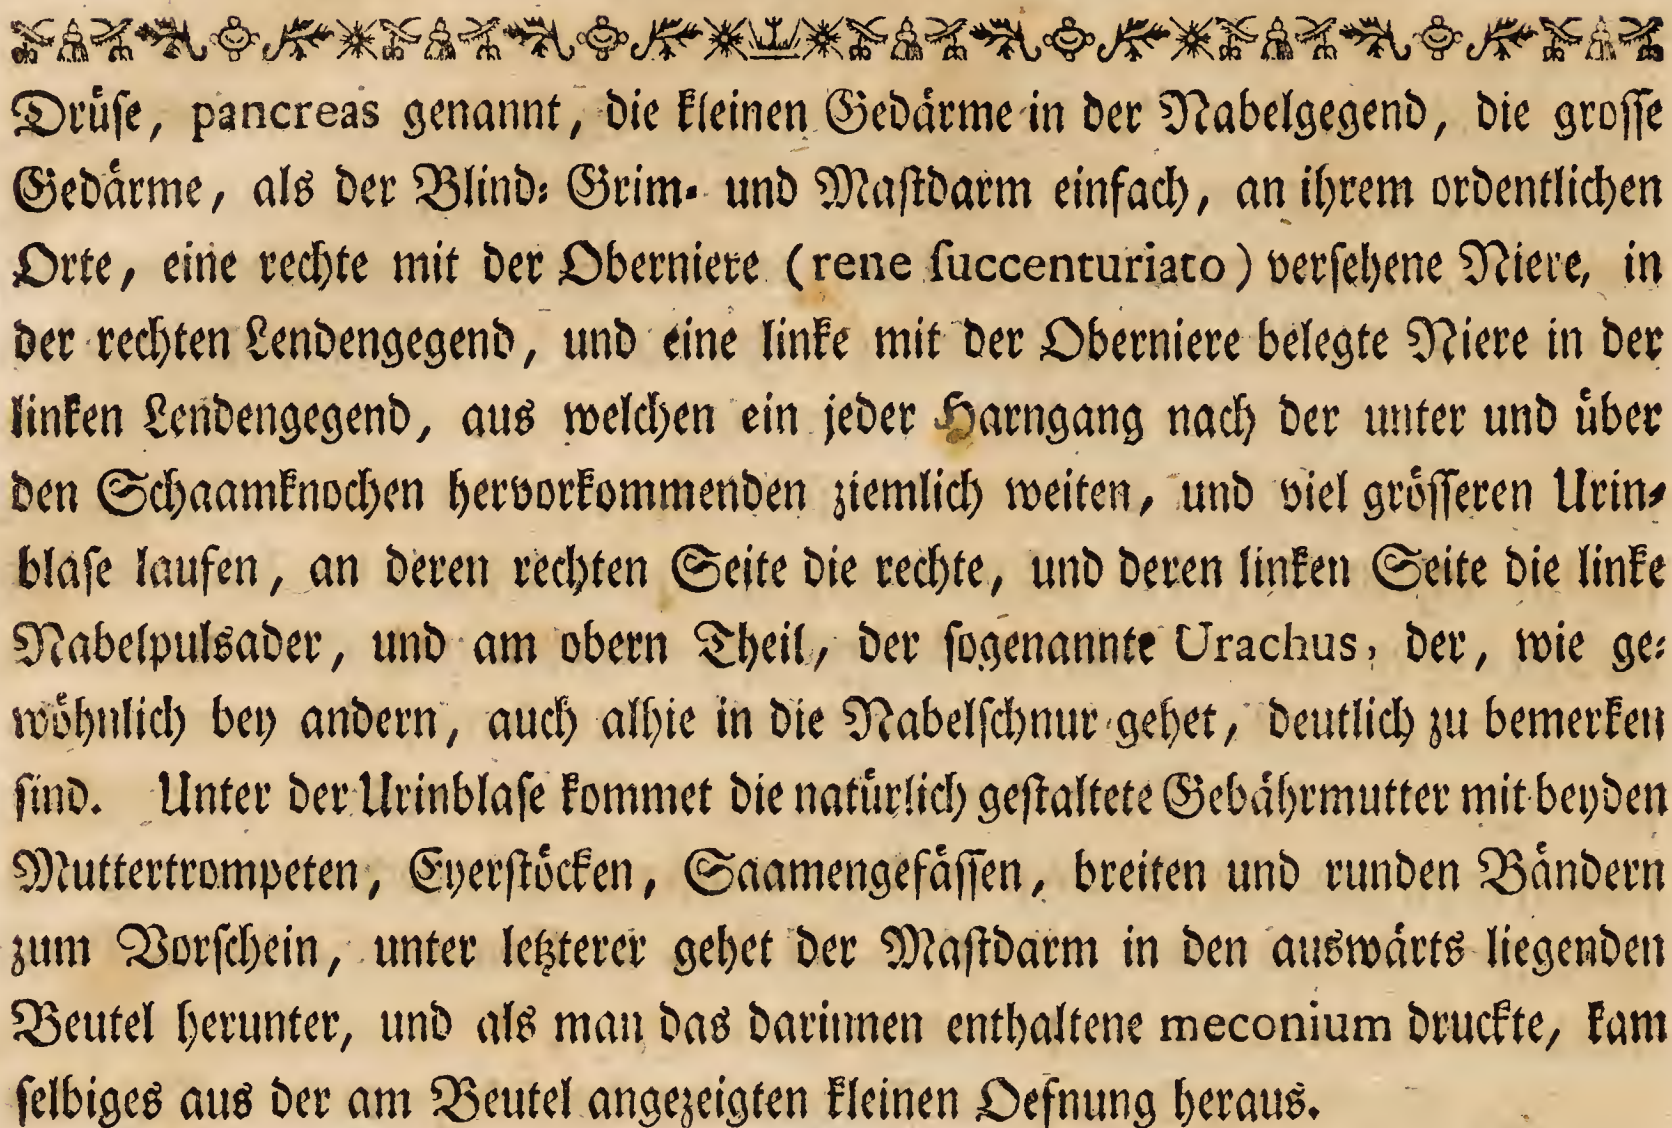 Drüſe, pancreas genannt, die kleinen Gedärme in der Nabelgegend, die groſſe
Gedärme, als der Blind: Grim- und Maſtdarm einfach, an ihrem ordentlichen
Orte, eine rechte mit der Oberniere (rene ſuccenturiato) verſehene Niere, in
der rechten Lendengegend, und eine linke mit der Oberniere belegte Niere in der
linken Lendengegend, aus welchen ein jeder Harngang nach der unter und über
den Schaamknochen hervorkommenden ziemlich weiten, und viel gröſſeren Urin-
blaſe laufen, an deren rechten Seite die rechte, und deren linken Seite die linke
Nabelpulsader, und am obern Theil, der ſogenannte Urachus, der, wie ge:
wöhnlich bey andern, auch alhie in die Nabelſchnur gehet, deutlich zu bemerken
ſind. Unter der Urinblaſe kommet die natürlich geſtaltete Gebährmutter mit beyden
Muttertrompeten, Eyerſtöcken, Saamengefäſſen, breiten und runden Bändern
zum Vorſchein, unter letzterer gehet der Maſtdarm in den auswärts liegenden
Beutel herunter, und als man das darinnen enthaltene meconium druckte, kam
ſelbiges aus der am Beutel angezeigten kleinen Oefnung heraus.